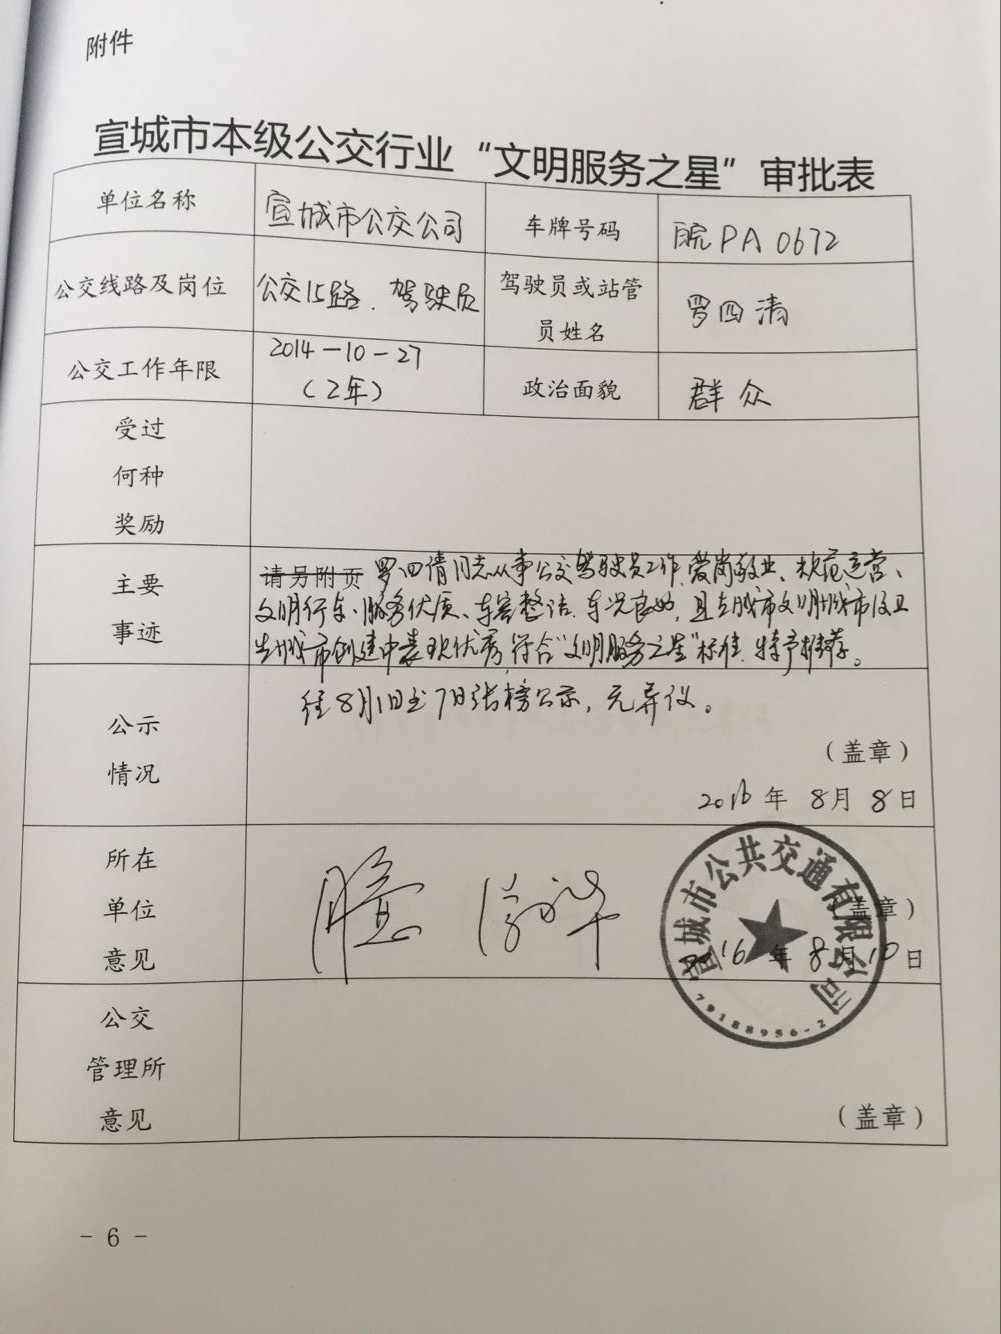 附件
宣城市本级公交行业“文明服务之星”审批表
单位名称 宣城市公交公司 车牌号码 皖PA0672
公交线路及岗位 公交15路、驾驶员 驾驶员或站管员姓名 罗四清
公交工作年限 2014-10-27 (2年) 政治面貌 群众
受过
何种
奖励
主要
事迹
请另附页 罗四清同志从事公交驾驶员工作,爱岗敬业、规范运营、
文明行车、服务优质、车容整洁、车况良好,且在城市文明城市及卫
生城市创建中表现优秀,符合“文明服务之星”标准,特予推荐。
公示
情况
经8月1日至7日张榜公示,无异议。
(盖章)
2016年8月8日
所在
单位
意见
(盖章)
2016年8月10日
宣城市公共交通有限公司
公交
管理所
意见
(盖章)
- 6 -